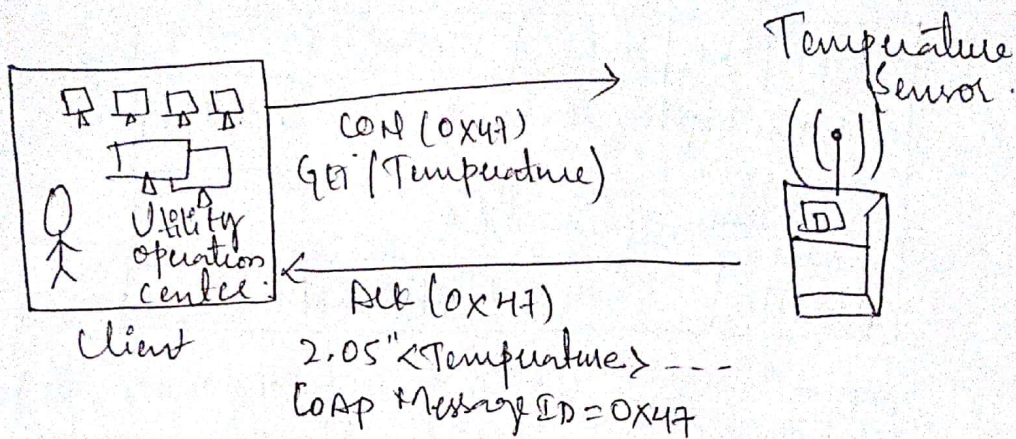 Temperature
Sensor.
CON (0x47)
GET (Temperature)
Utility
operation
centre.
Client
Ack (0x47)
2.05"<Temperature> ---
CoAp Message ID = 0x47